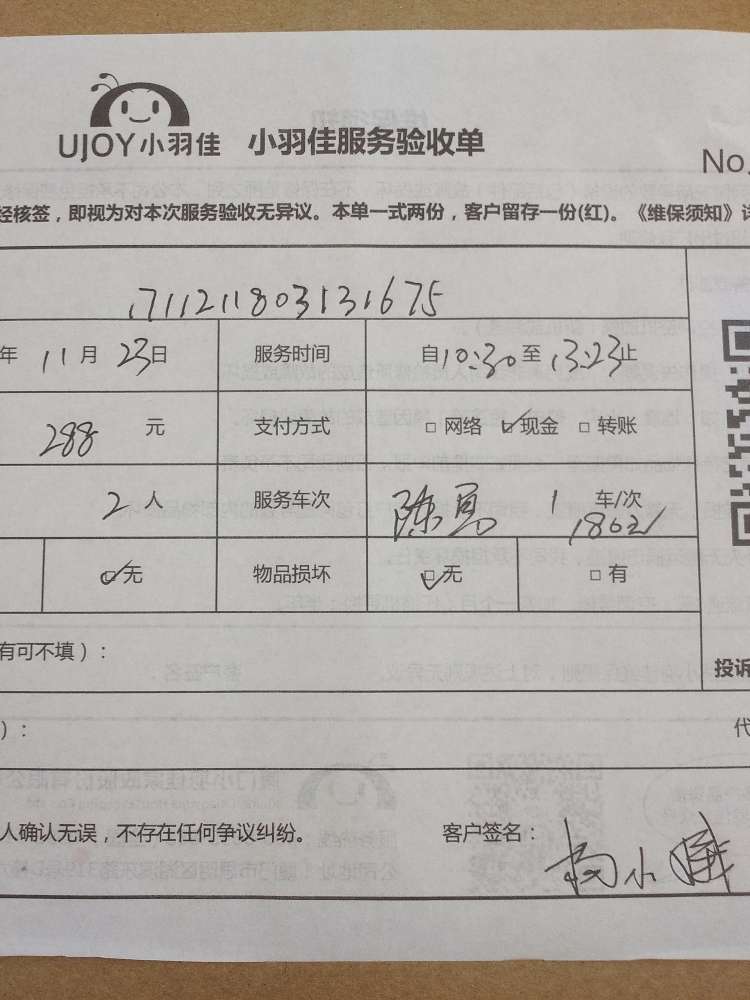 UJOY小羽佳 小羽佳服务验收单
No.
经核签，即视为对本次服务验收无异议。本单一式两份，客户留存一份(红)。《维保须知》
171121180313 1675
年 11月 23日 服务时间 自10:30至 13:23止
288 元 支付方式 □ 网络 ☑ 现金 □ 转账
2 人 服务车次 陈 1 车/次
180元
☑无 物品损坏 ☑无 □有
有可不填）：
投诉
）： 代
人确认无误，不存在任何争议纠纷。 客户签名： 杨小